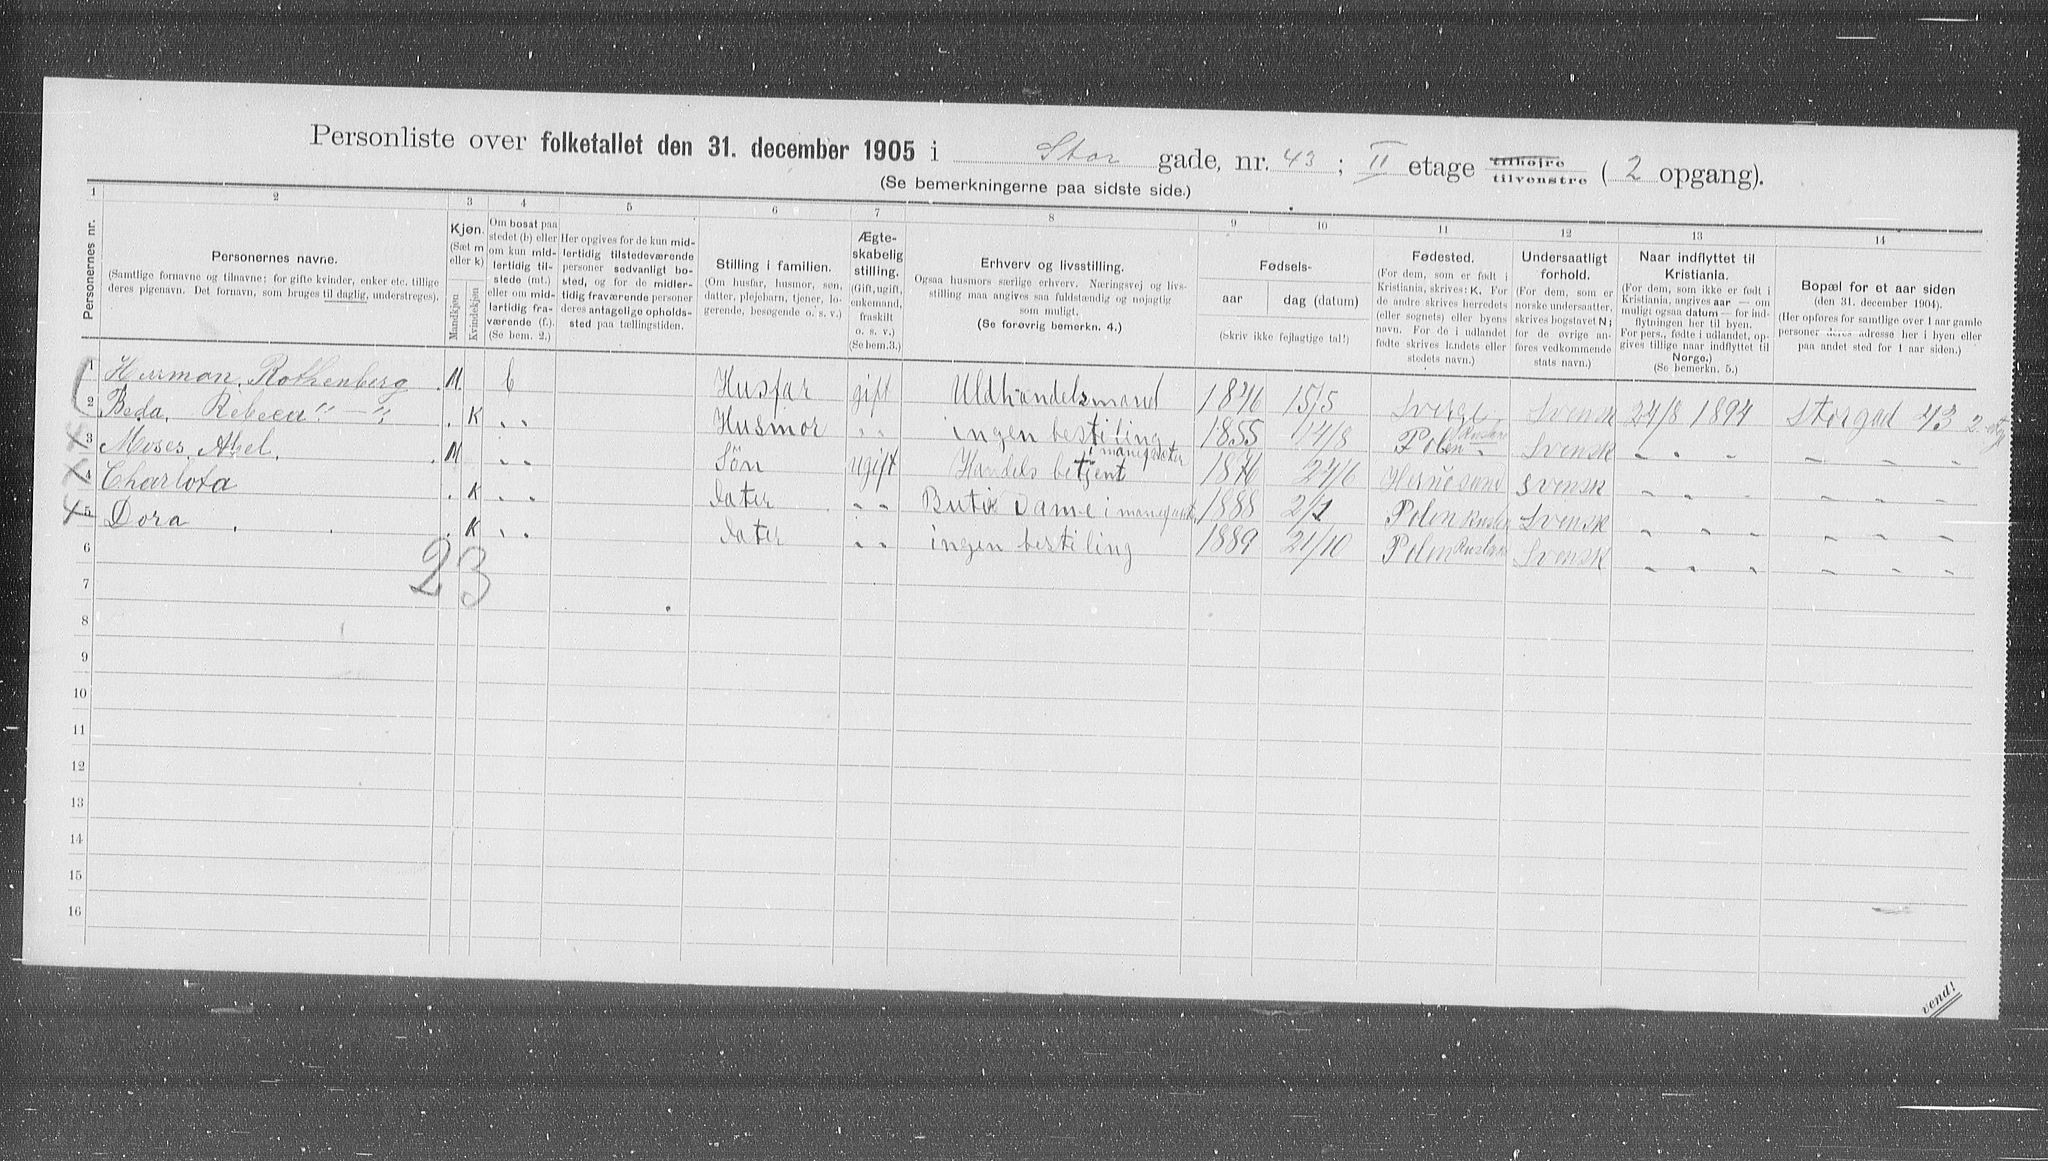 Personliste over folketallet den 31. december 1905 i Stor gade, nr. 43 ; II etage tilhøjre tilvenstre ( 2 opgang).
(Se bemerkningerne paa sidste side.)
1 2 3 4 5 6 7 8 9 10 11 12 13 14
Personernes nr.
Personernes navne.
(Samtlige fornavne og tilnavne; for gifte kvinder, enker etc. tillige
deres pigenavn. Det fornavn, som bruges til daglig, understreges).
Kjøn.
(Sæt m
eller k)
Mandkjøn
Kvindekjøn
Om bosat paa
stedet (b) eller
om kun mid-
lertidig til-
stede (mt.)
eller om mid-
lertidig fra-
værende (f.).
(Se bem. 2.)
Her opgives for de kun mid-
lertidig tilstedeværende
personer sedvanligt bo-
sted, og for de midler-
tidig fraværende personer
deres antagelige opholds-
sted paa tællingstiden.
Stilling i familien.
(Om husfar, husmor, søn,
datter, plejebarn, tjener, lo-
gerende, besøgende o. s. v.)
Ægte-
skabelig
stilling.
(Gift, ugift,
enkemand,
fraskilt
o. s. v.)
(Se bem.3.)
Erhverv og livsstilling.
Ogsaa husmors særlige erhverv. Næringsvej og livs-
stilling maa angives saa fuldstændig og nøjagtig
som muligt.
(Se forøvrig bemerkn. 4.)
Fødsels-
aar dag (datum)
(Skriv ikke fejlagtige tal!)
Fødested.
(For dem, som er født i
Kristiania, skrives: K. For
de andre skrives herredets
(eller sognets) eller byens
navn. For de i udlandet
fødte skrives landets eller
stedets navn.)
Undersaatligt
forhold.
(For dem, som er
norske undersaatter,
skrives bogstavet N;
for de øvrige an-
føres vedkommende
stats navn.)
Naar indflyttet til
Kristiania.
(For dem, som ikke er født i
Kristiania, angives aar — om
muligt ogsaa datum — for ind-
flytningen her til byen.
For pers., fødte i udlandet, op-
gives tillige naar indflyttet til
Norge.)
(Se bemerkn. 5.)
Bopæl for et aar siden
(den 31. december 1904).
(Her opføres for samtlige over 1 aar gamle
personer deres adresse her i byen eller
paa andet sted for 1 aar siden.)
1 Herman, Rothenberg M b Husfar gift Uldhandelsmand 1846 15/5 Sverge Svensk 24/8 1894 Storgad 43 2 etg
2 Beda, Rebeca " — " K " Husmor " ingen bestiling 1855 14/8 Polen Rusland Svensk " " " " " "
3 Moses, Abel M " Sön ugift Handels betjent i manefakter 1876 24/6 Hernösand Svensk " " " " " "
4 Charlota K " dater " Butik Dame i 1888 2/1 Polen Svensk " " " " " "
5 Dora K " dater " ingen bestiling 1889 21/10 Polen Rusland Svensk " " " " " "
23
6
7
8
9
10
11
12
13
14
15
16
vend!